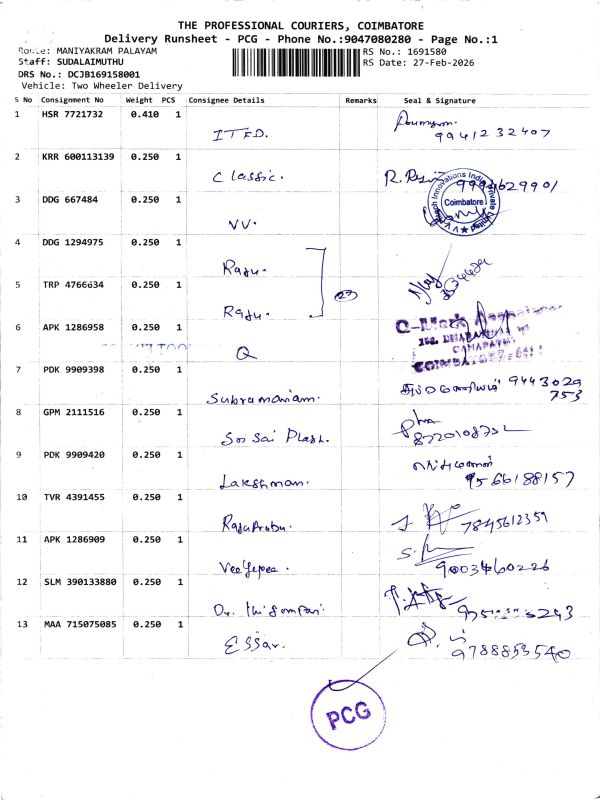 THE PROFESSIONAL COURIERS, COIMBATORE
Delivery Runsheet - PCG - Phone No.:9047080280 - Page No.:1
Route: MANIYAKRAM PALAYAM
RS No.: 1691580
Staff: SUDALAIMUTHU
RS Date: 27-Feb-2026
DRS No.: DCJB169158001
Vehicle: Two Wheeler Delivery
S No Consignment No Weight PCS Consignee Details Remarks Seal & Signature
1 HSR 7721732 0.410 1
ITFD. 9941232407
2 KRR 600113139 0.250 1
Classic. R.
3 DDG 667484 0.250 1
VV. Coimbatore
4 DDG 1294975 0.250 1
Raju.
5 TRP 4766634 0.250 1
Raju.
6 APK 1286958 0.250 1
Q Q-Mark
7 PDK 9909398 0.250 1
Subramaniam. 9443029
753
8 GPM 2111516 0.250 1
Sri Sai Plast.
9 PDK 9909420 0.250 1
Lakshman. 9566188157
10 TVR 4391455 0.250 1
RajaPrabu. 7845612359
11 APK 1286909 0.250 1
Veejepee. 9003460226
12 SLM 390133880 0.250 1
Dr.
13 MAA 715075085 0.250 1
Essar. 9788853540
PCG